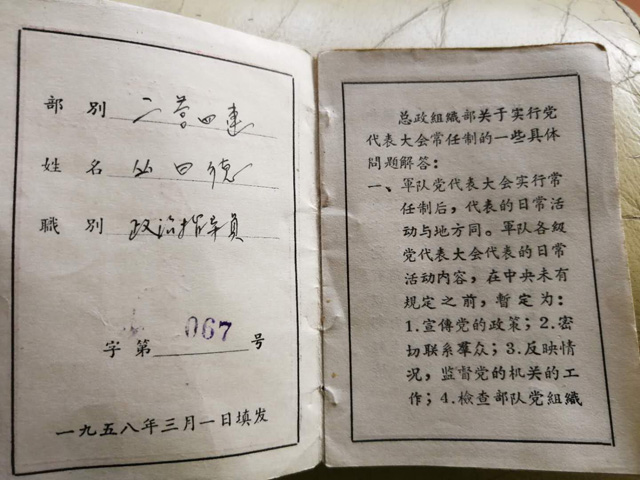 部别 二营四连
姓名
職别 政治指导員
字第 067 号
一九五八年三月一日填发
总政組織部关于实行党
代表大会常任制的一些具体
問題解答：
一、軍队党代表大会实行常
任制后，代表的日常活
动与地方同。軍队各級
党代表大会代表的日常
活动内容，在中央未有
規定之前，暫定为：
1.宣傳党的政策；2.密
切联系羣众；3.反映情
况，监督党的机关的工
作；4.檢查部队党組織